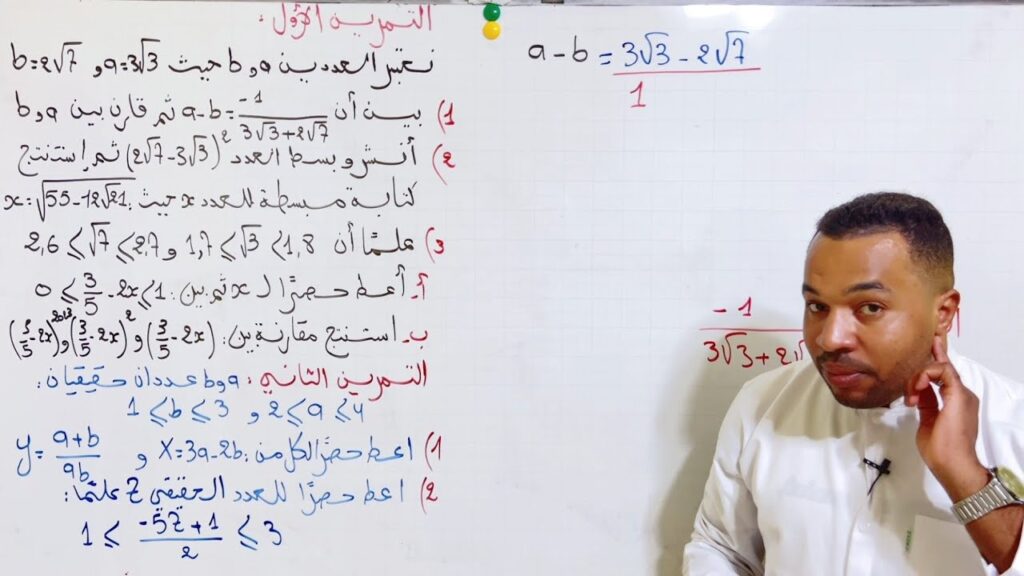 التمرين الأول :
نعتبر العددين a و b حيث a=3√3 و b=2√7
1) بين أن a-b = -1/(3√3+2√7) ثم قارن بين a و b
2) أنشر و بسط العدد (2√7-3√3)² ثم إستنتج
كتابة مبسطة للعدد x حيث : x=√(55-12√21)
3) علمًا أن 1,7 ⩽ √3 ⩽ 1,8 و 2,6 ⩽ √7 ⩽ 2,7
أ- أعط حصرًا ل x ثم بين : 0 ⩽ 3/5 - 2x ⩽ 1
ب- استنتج مقارنة بين : (3/5 - 2x) و (3/5 - 2x)² و (3/5 - 2x)
التمرين الثاني : a و b عددان حقيقيان :
2 ⩽ a ⩽ 4 و 1 ⩽ b ⩽ 3
1) اعط حصرًا لكل من : X=3a-2b و y = (a+b)/(ab)
2) اعط حصرًا للعدد الحقيقي Z علمًا :
1 ⩽ (-5Z+1)/2 ⩽ 3
a-b = (3√3 - 2√7)/1
-1/(3√3+2√